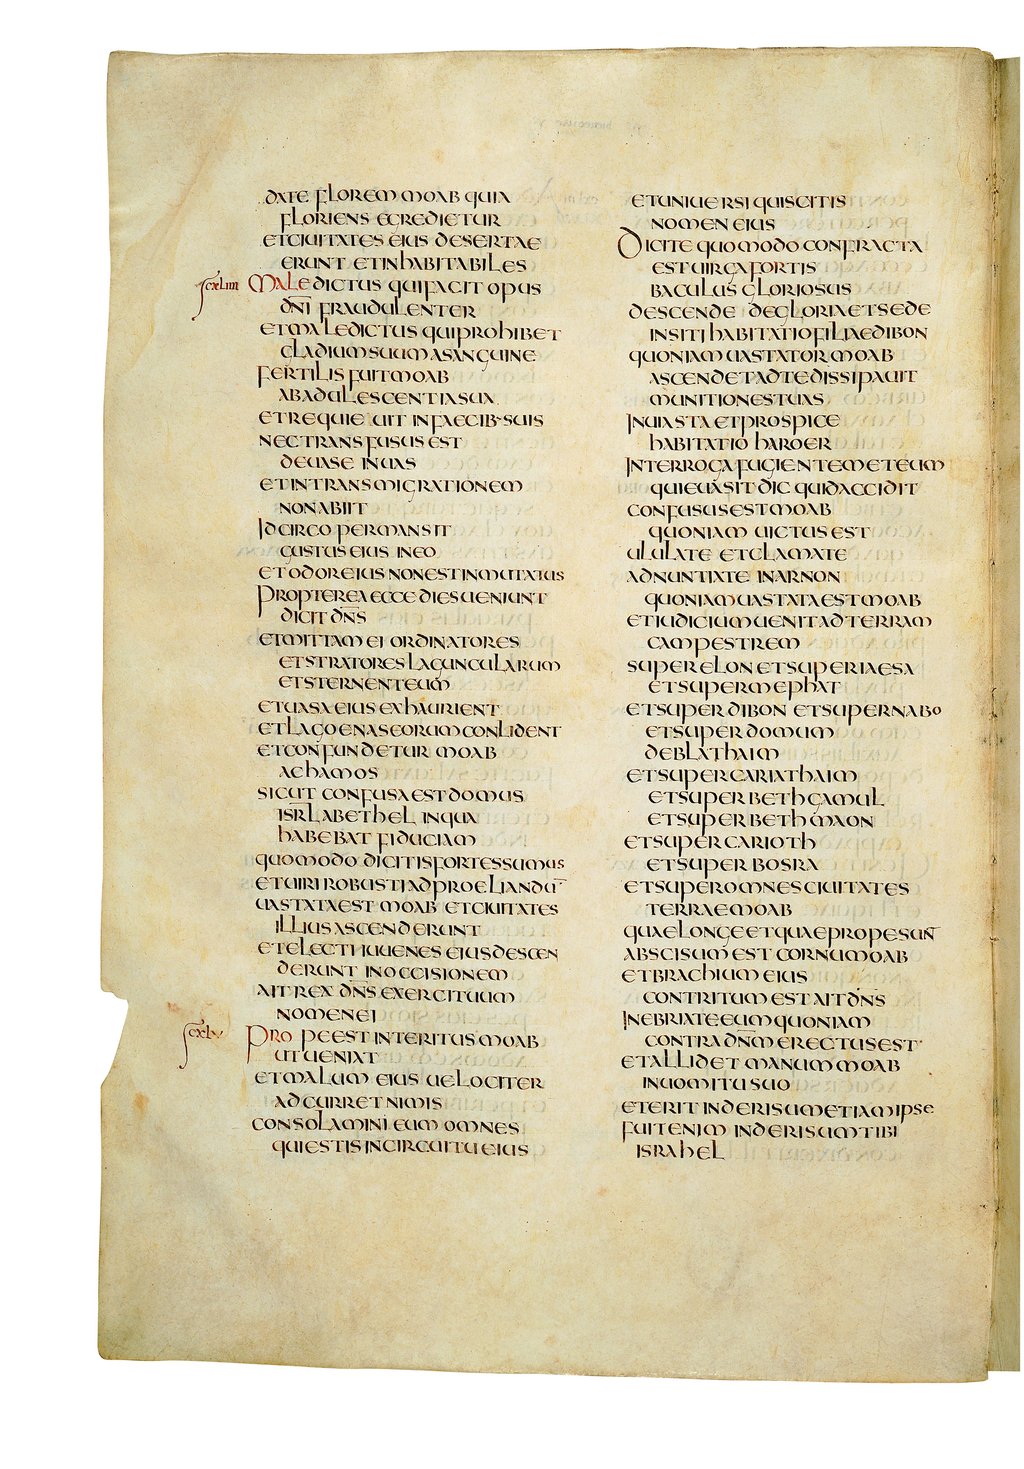 DATE FLOREM MOAB QUIA
FLORIENS EGREDIETUR
ET CIUITATES EIUS DESERTAE
ERUNT ET INHABITABILES
MALEDICTUS QUI FACIT OPUS
DNI FRAUDULENTER
ET MALEDICTUS QUI PROHIBET
GLADIUM SUUM A SANGUINE
FERTILIS FUIT MOAB
AB ADULESCENTIA SUA
ET REQUIEUIT IN FAECIB· SUIS
NEC TRANSFUSUS EST
DE UASE IN UAS
ET IN TRANSMIGRATIONEM
NON ABIIT
IDCIRCO PERMANSIT
GUSTUS EIUS IN EO
ET ODOR EIUS NON EST INMUTATUS
PROPTEREA ECCE DIES UENIUNT
DICIT DNS
ET MITTAM EI ORDINATORES
ET STRATORES LAGUNCULARUM
ET STERNENT EUM
ET UASA EIUS EXHAURIENT
ET LAGOENAS EORUM CONLIDENT
ET CONFUNDETUR MOAB
A CHAMOS
SICUT CONFUSA EST DOMUS
ISRL A BETHEL IN QUA
HABEBAT FIDUCIAM
QUOMODO DICITIS FORTES SUMUS
ET UIRI ROBUSTI AD PROELIANDU¯
UASTATA EST MOAB ET CIUITATES
ILLIUS ASCENDERUNT
ET ELECTI IUUENES EIUS DESCEN
DERUNT IN OCCISIONEM
AIT REX DNS EXERCITUUM
NOMEN EI
PROPE EST INTERITUS MOAB
UT UENIAT
ET MALUM EIUS UELOCITER
ADCURRET NIMIS
CONSOLAMINI EUM OMNES
QUI ESTIS IN CIRCUITU EIUS
ET UNIUERSI QUI SCITIS
NOMEN EIUS
DICITE QUOMODO CONFRACTA
EST UIRGA FORTIS
BACULUS GLORIOSUS
DESCENDE DE GLORIA ET SEDE
IN SITI HABITATIO FILIAE DIBON
QUONIAM UASTATOR MOAB
ASCENDET AD TE DISSIPAUIT
MUNITIONES TUAS
IN UIA STA ET PROSPICE
HABITATIO HAROER
INTERROGA FUGIENTEM ET EUM
QUI EUASIT DIC QUID ACCIDIT
CONFUSUS EST MOAB
QUONIAM UICTUS EST
ULULATE ET CLAMATE
ADNUNTIATE IN ARNON
QUONIAM UASTATA EST MOAB
ET IUDICIUM UENIT AD TERRAM
CAMPESTREM
SUPER ELON ET SUPER IAESA
ET SUPER MEPHAT
ET SUPER DIBON ET SUPER NABO
ET SUPER DOMUM
DEBLATHAIM
ET SUPER CARIATHAIM
ET SUPER BETHGAMUL
ET SUPER BETHMAON
ET SUPER CARIOTH
ET SUPER BOSRA
ET SUPER OMNES CIUITATES
TERRAE MOAB
QUAE LONGE ET QUAE PROPE SUN¯
ABSCISUM EST CORNU MOAB
ET BRACHIUM EIUS
CONTRITUM EST AIT DNS
INEBRIATE EUM QUONIAM
CONTRA DNM ERECTUS EST
ET ALLIDET MANUM MOAB
IN UOMITU SUO
ET ERIT IN DERISUM ETIAM IPSE
FUIT ENIM IN DERISUM TIBI
ISRAHEL